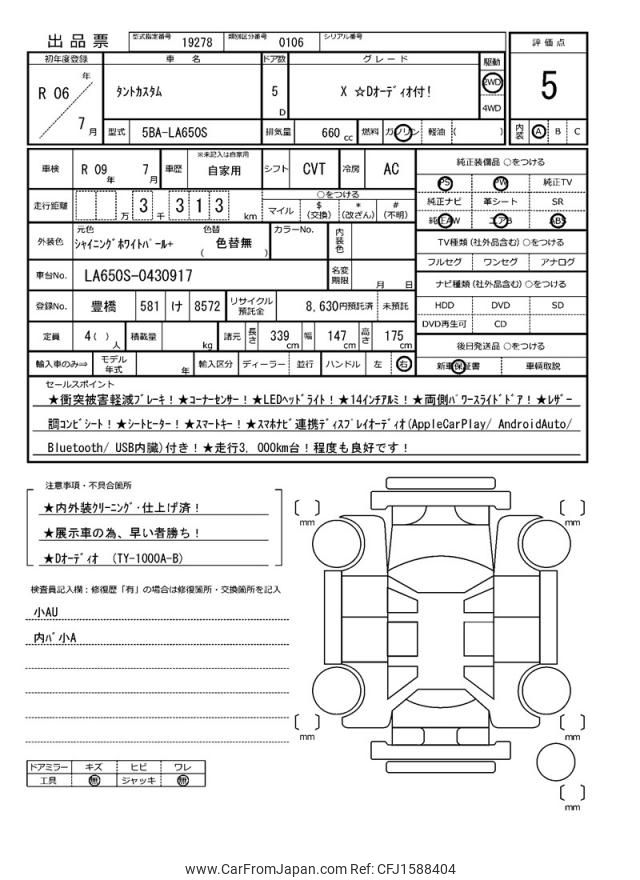 出品票 型式指定番号 19278 類別区分番号 0106 シリアル番号
初年度登録 車名 ドア数 グレード 駆動 評価点
R 06 年 7 月 タントカスタム 5 D X ☆Dオーディオ付! 2WD 4WD 5
型式 5BA-LA650S 排気量 660 cc 燃料 ガソリン 軽油 ( ) 内装 A B C
車検 R 09 年 7 月 車歴 ※未記入は自家用 自家用 シフト CVT 冷房 AC 純正装備品 ○をつける
PS PW 純正TV
走行距離 万 3 千 3 1 3 km ○をつける
マイル $ (交換) * (改ざん) # (不明)
純正ナビ 革シート SR
純正AW エアB ABS
外装色 元色 シャイニングホワイトパール+ 色替 ( 色替無 ) カラーNo. 内装色
TV種類 (社外品含む) ○をつける
フルセグ ワンセグ アナログ
車台No. LA650S-0430917 名変期限 月 日
ナビ種類 (社外品含む) ○をつける
登録No. 豊橋 581 け 8572 リサイクル預託金 8,630円預託済 未預託
HDD DVD SD
DVD再生可 CD
定員 4 ( ) 人 積載量 kg 諸元 長さ 339 cm 幅 147 cm 高さ 175 cm
後日発送品 ○をつける
輸入車のみ⇒ モデル年式 年 輸入区分 ディーラー 並行 ハンドル 左 右 新車保証書 車輌取説
セールスポイント
★衝突被害軽減ブレーキ!★コーナーセンサー!★LEDヘッドライト!★14インチアルミ!★両側パワースライドドア!★レザー
調コンビシート!★シートヒーター!★スマートキー!★スマホナビ連携ディスプレイオーディオ(AppleCarPlay/ AndroidAuto/
Bluetooth/ USB内臓)付き!★走行3, 000km台!程度も良好です!
注意事項・不具合箇所
★内外装クリーニング・仕上げ済!
★展示車の為、早い者勝ち!
★Dオーディオ (TY-1000A-B)
検査員記入欄:修復歴「有」の場合は修復箇所・交換箇所を記入
小AU
内バ小A
mm
mm
mm
mm
mm
ドアミラー キズ ヒビ ワレ
工具 無 ジャッキ 無
www.CarFromJapan.com Ref: CFJ1588404